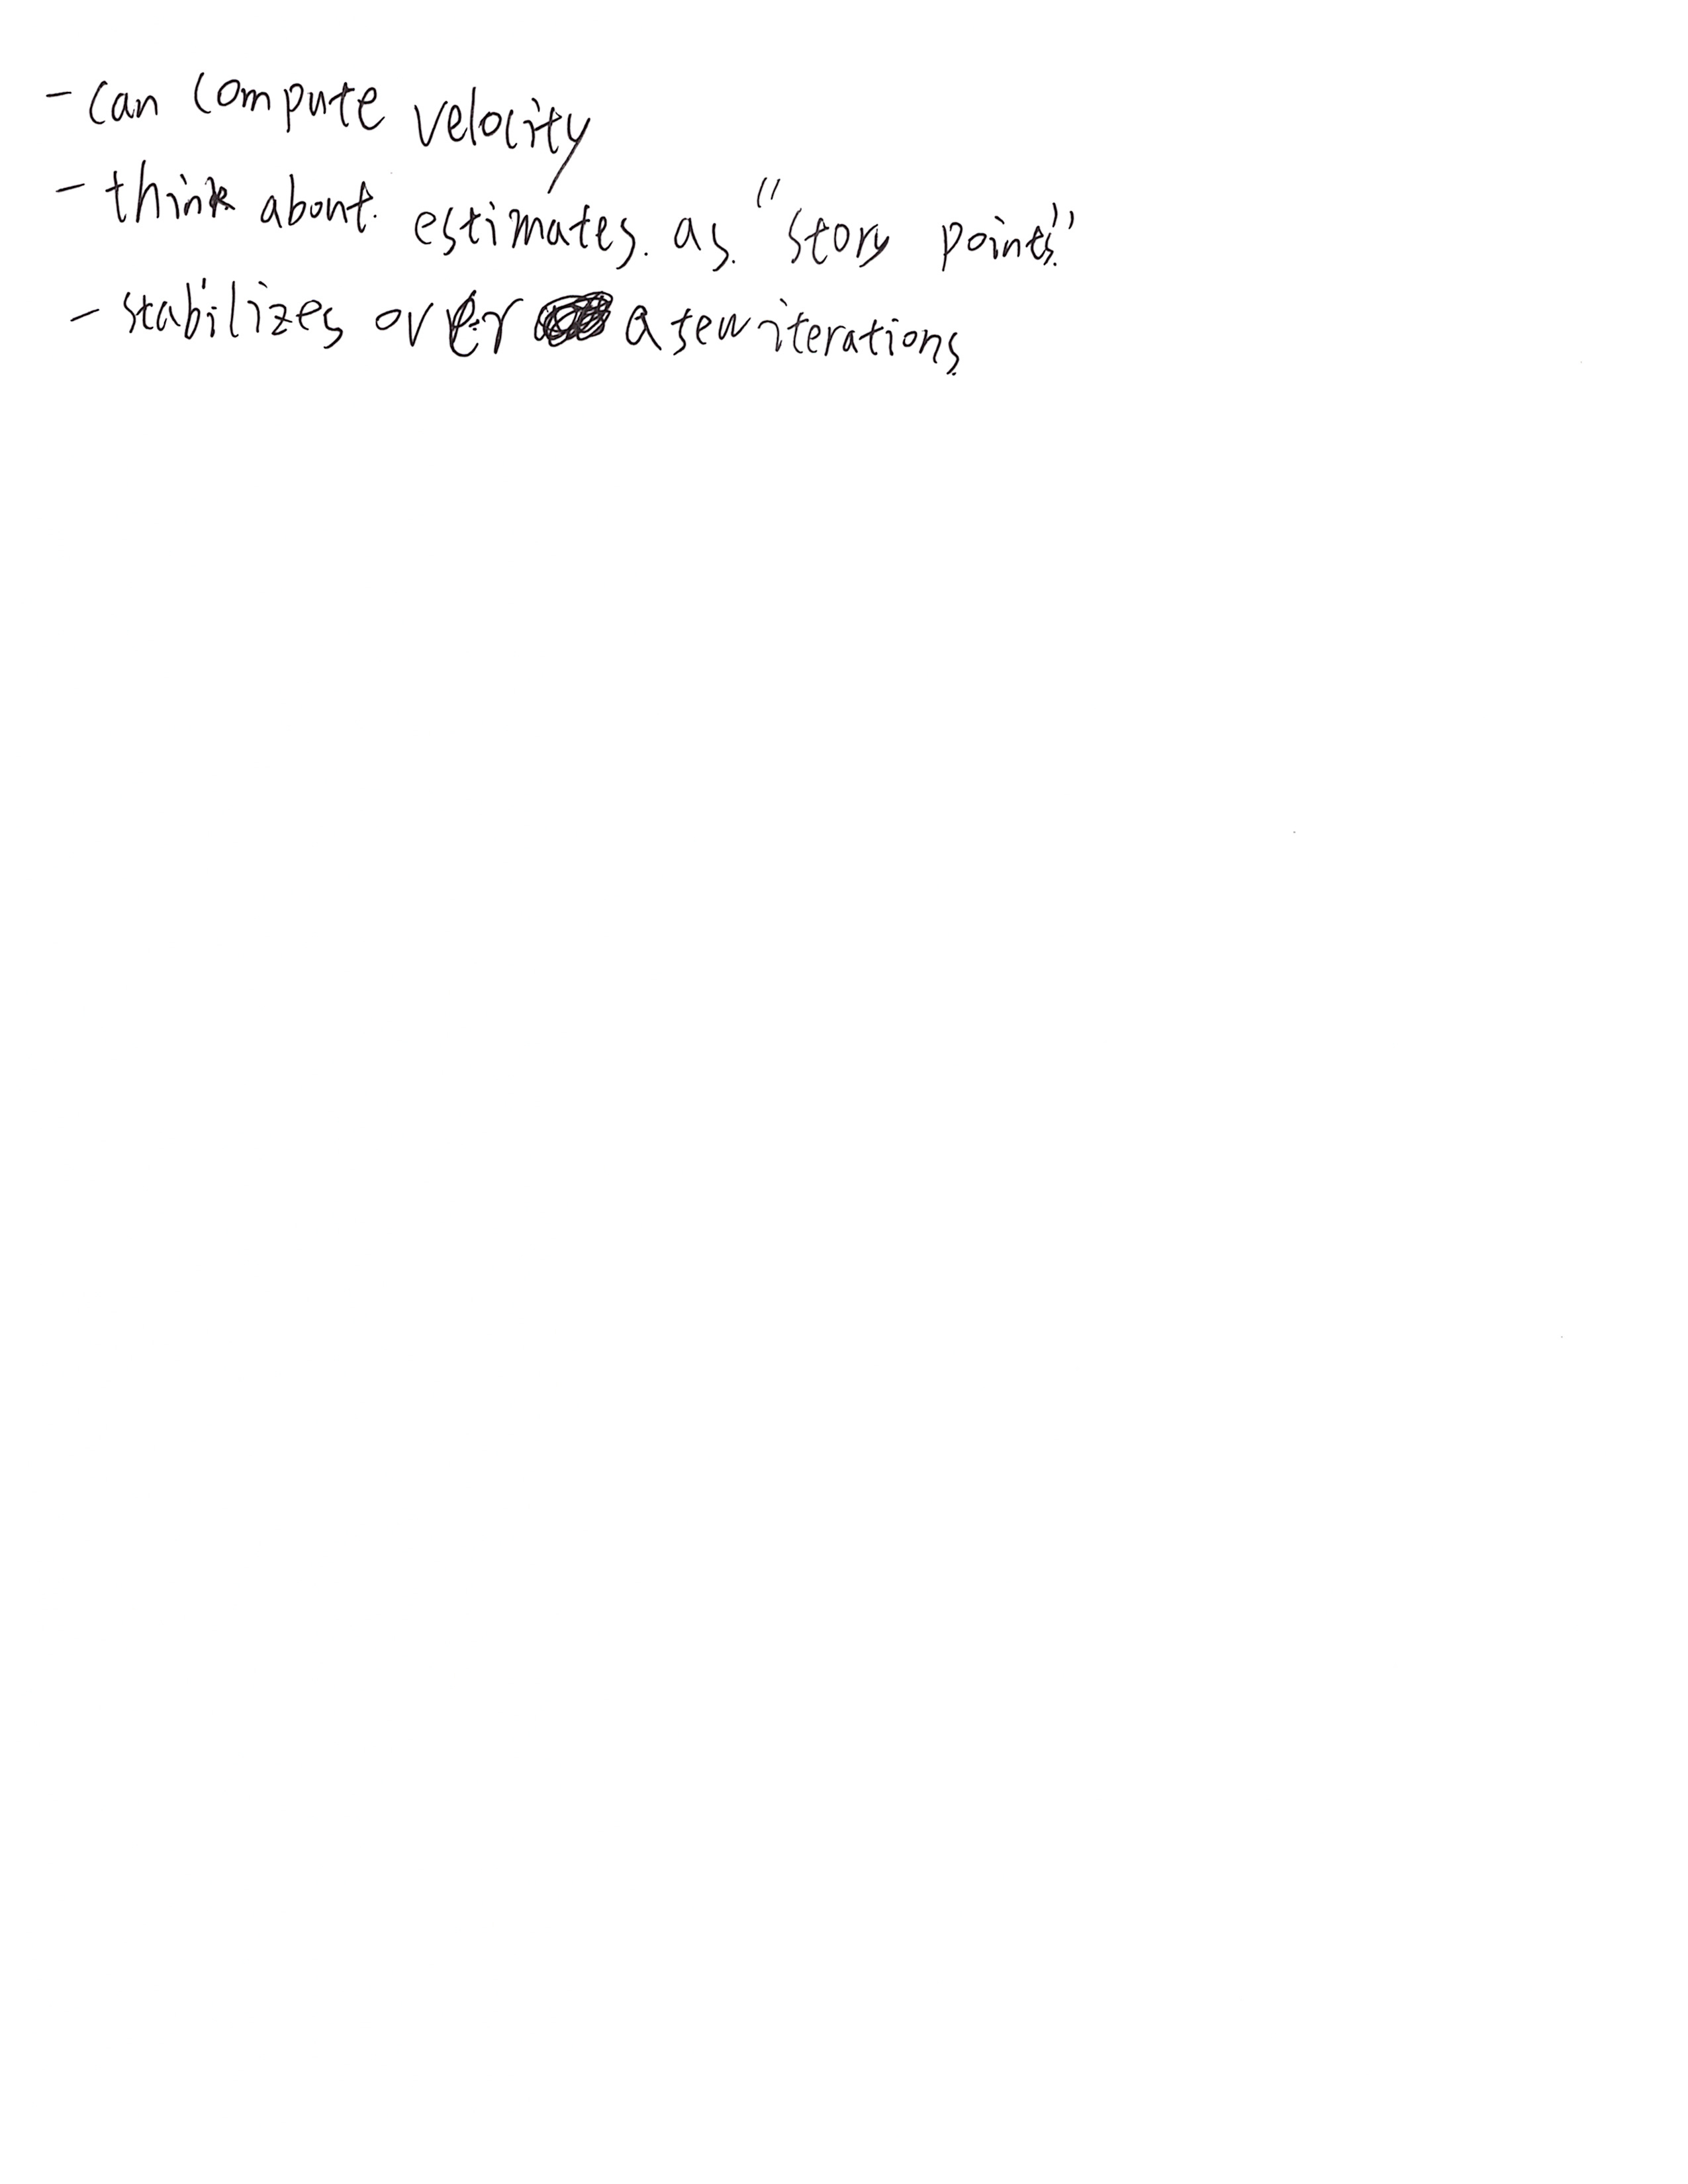 - can compute velocity
- think about estimates as "story points"
- stabilizes over a few iterations